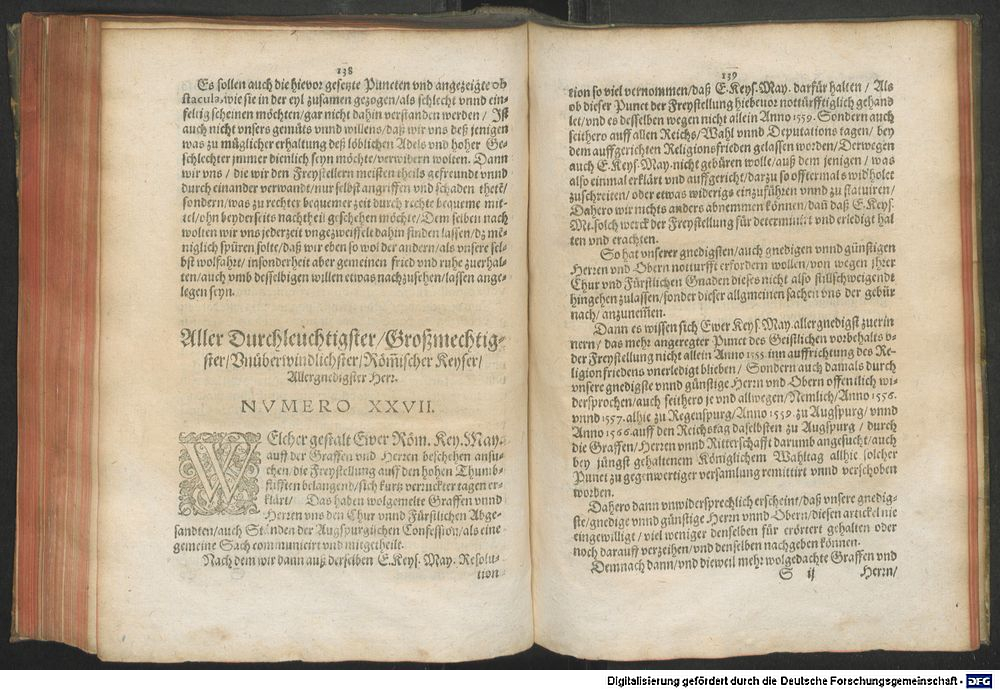 138
Es sollen auch die hievor gesetzte Puncten vnd angezeigte ob
stacula, wie sie in der eyl zusamen gezogen/als schlecht vnnd ein-
feltig scheinen möchten/gar nicht dahin verstanden werden / Ist
auch nicht vnsers gemüts vnnd willens/daß wir vns deß jenigen
was zu müglicher erhaltung deß löblichen Adels vnd hoher Ge-
schlechter jmmer dienlich seyn möchte/verwidern wolten. Dann
wir vns / die wir den Freystellern meisten theils gefreundt vnnd
durch einander verwandt/nur selbst angriffen vnd schaden thetē/
sondern/was zu rechter bequemer zeit durch rechte bequeme mit-
tel/ohn beyderseits nachtheil geschehen möchte/Dem selben nach
wolten wir vns jederzeit vngezweiffelt dahin finden lassen/dz mē-
niglich spüren solte/daß wir eben so wol der andern/als vnsere sel-
bst wolfahrt/ insonderheit aber gemeinen fried vnd ruhe zuerhal-
ten/auch vmb desselbigen willen etwas nachzusehen/lassen ange-
legen seyn.
Aller Durchleuchtigster/Großmechtig-
ster/Vnüberwindlichster/Römischer Keyser/
Allergnedigster Herr.
NVMERO XXVII.
WElcher gestalt Ewer Röm. Key. May.
auff der Graffen vnd Herren beschehen ansu-
chen/die Freystellung auff den hohen Thumb-
stifften belangend/sich kurtz verruckter tagen er-
klärt/ Das haben wolgemelte Graffen vnnd
Herren vns den Chur vnnd Fürstlichen Abge-
sandten/auch Ständen der Augspurgischen Confession/als eine
gemeine Sach communicirt vnd mitgetheilt.
Nach dem wir dann auß derselben E. Keys. May. Resolu-
tion
139
tion so viel vernommen/daß E. Keys. May. darfür halten / Als
ob dieser Punct der Freystellung hiebeuor notturfftiglich gehand
let/vnd es desselben wegen nicht allein Anno 1559. Sondern auch
seithero auff allen Reichs/Wahl vnnd Deputations tagen/ bey
dem auffgerichten Religionsfrieden gelassen worden/Derwegen
auch E. Keys. May. nicht gebüren wolle/auß dem jenigen / was
also einmal erklärt vnd auffgericht/darzu so offtermals wid'holet
zuschreiten/ oder etwas widerigs einzuführen vnnd zu statuiren/
Dahero wir nichts anders abnemmen können/dañ daß E. Keys.
Mt. solch werck der Freystellung für determinirt vnd erledigt hal
ten vnd erachten.
So hat vnserer gnedigsten/auch gnedigen vnnd günstigen
Herren vnd Obern notturfft erfordern wollen/von wegen jhrer
Chur vnd Fürstlichen Gnaden dieses nicht also stillschweigendt
hingehen zulassen/sonder dieser allgmeinen sachen vns der gebür
nach/ anzunemmen.
Dann es wissen sich Ewer Keys. May. allergnedigst zuerin
nern/ das mehr angeregter Punct des Geistlichen vorbehalts vn
der Freystellung nicht allein Anno 1555. inn auffrichtung des Re-
ligionfriedens vnerledigt blieben/ Sondern auch damals durch
vnsere gnedigste vnnd günstige Herrn vnd Obern offentlich wi-
dersprochen/auch seithero je vnd allwegen/Nemlich/Anno 1556.
vnnd 1557. alhie zu Regenspurg/Anno 1559. zu Augspurg / vnnd
Anno 1566. auff den Reichstag daselbsten zu Augspurg / durch
die Graffen/Herren vnnd Ritterschafft darumb angesucht/auch
bey jüngst gehaltenem Königlichem Wahltag allhie solcher
Punct zu gegenwertiger versamlung remittirt vnnd verschoben
worden.
Dahero dann vnwidersprechlich erscheint/daß vnsere gnedig-
ste/gnedige vnnd günstige Herrn vnnd Obern/diesen artickel nie
eingewilligt / viel weniger denselben für erörtert gehalten oder
noch darauff verzeihen/vnd denselben nachgeben können.
Demnach dann/vnd dieweil mehr wolgedachte Graffen vnd
S ij Herrn/
Digitalisierung gefördert durch die Deutsche Forschungsgemeinschaft - DFG